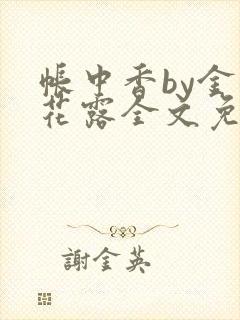 帳中香by金
花露全文免
謝金英